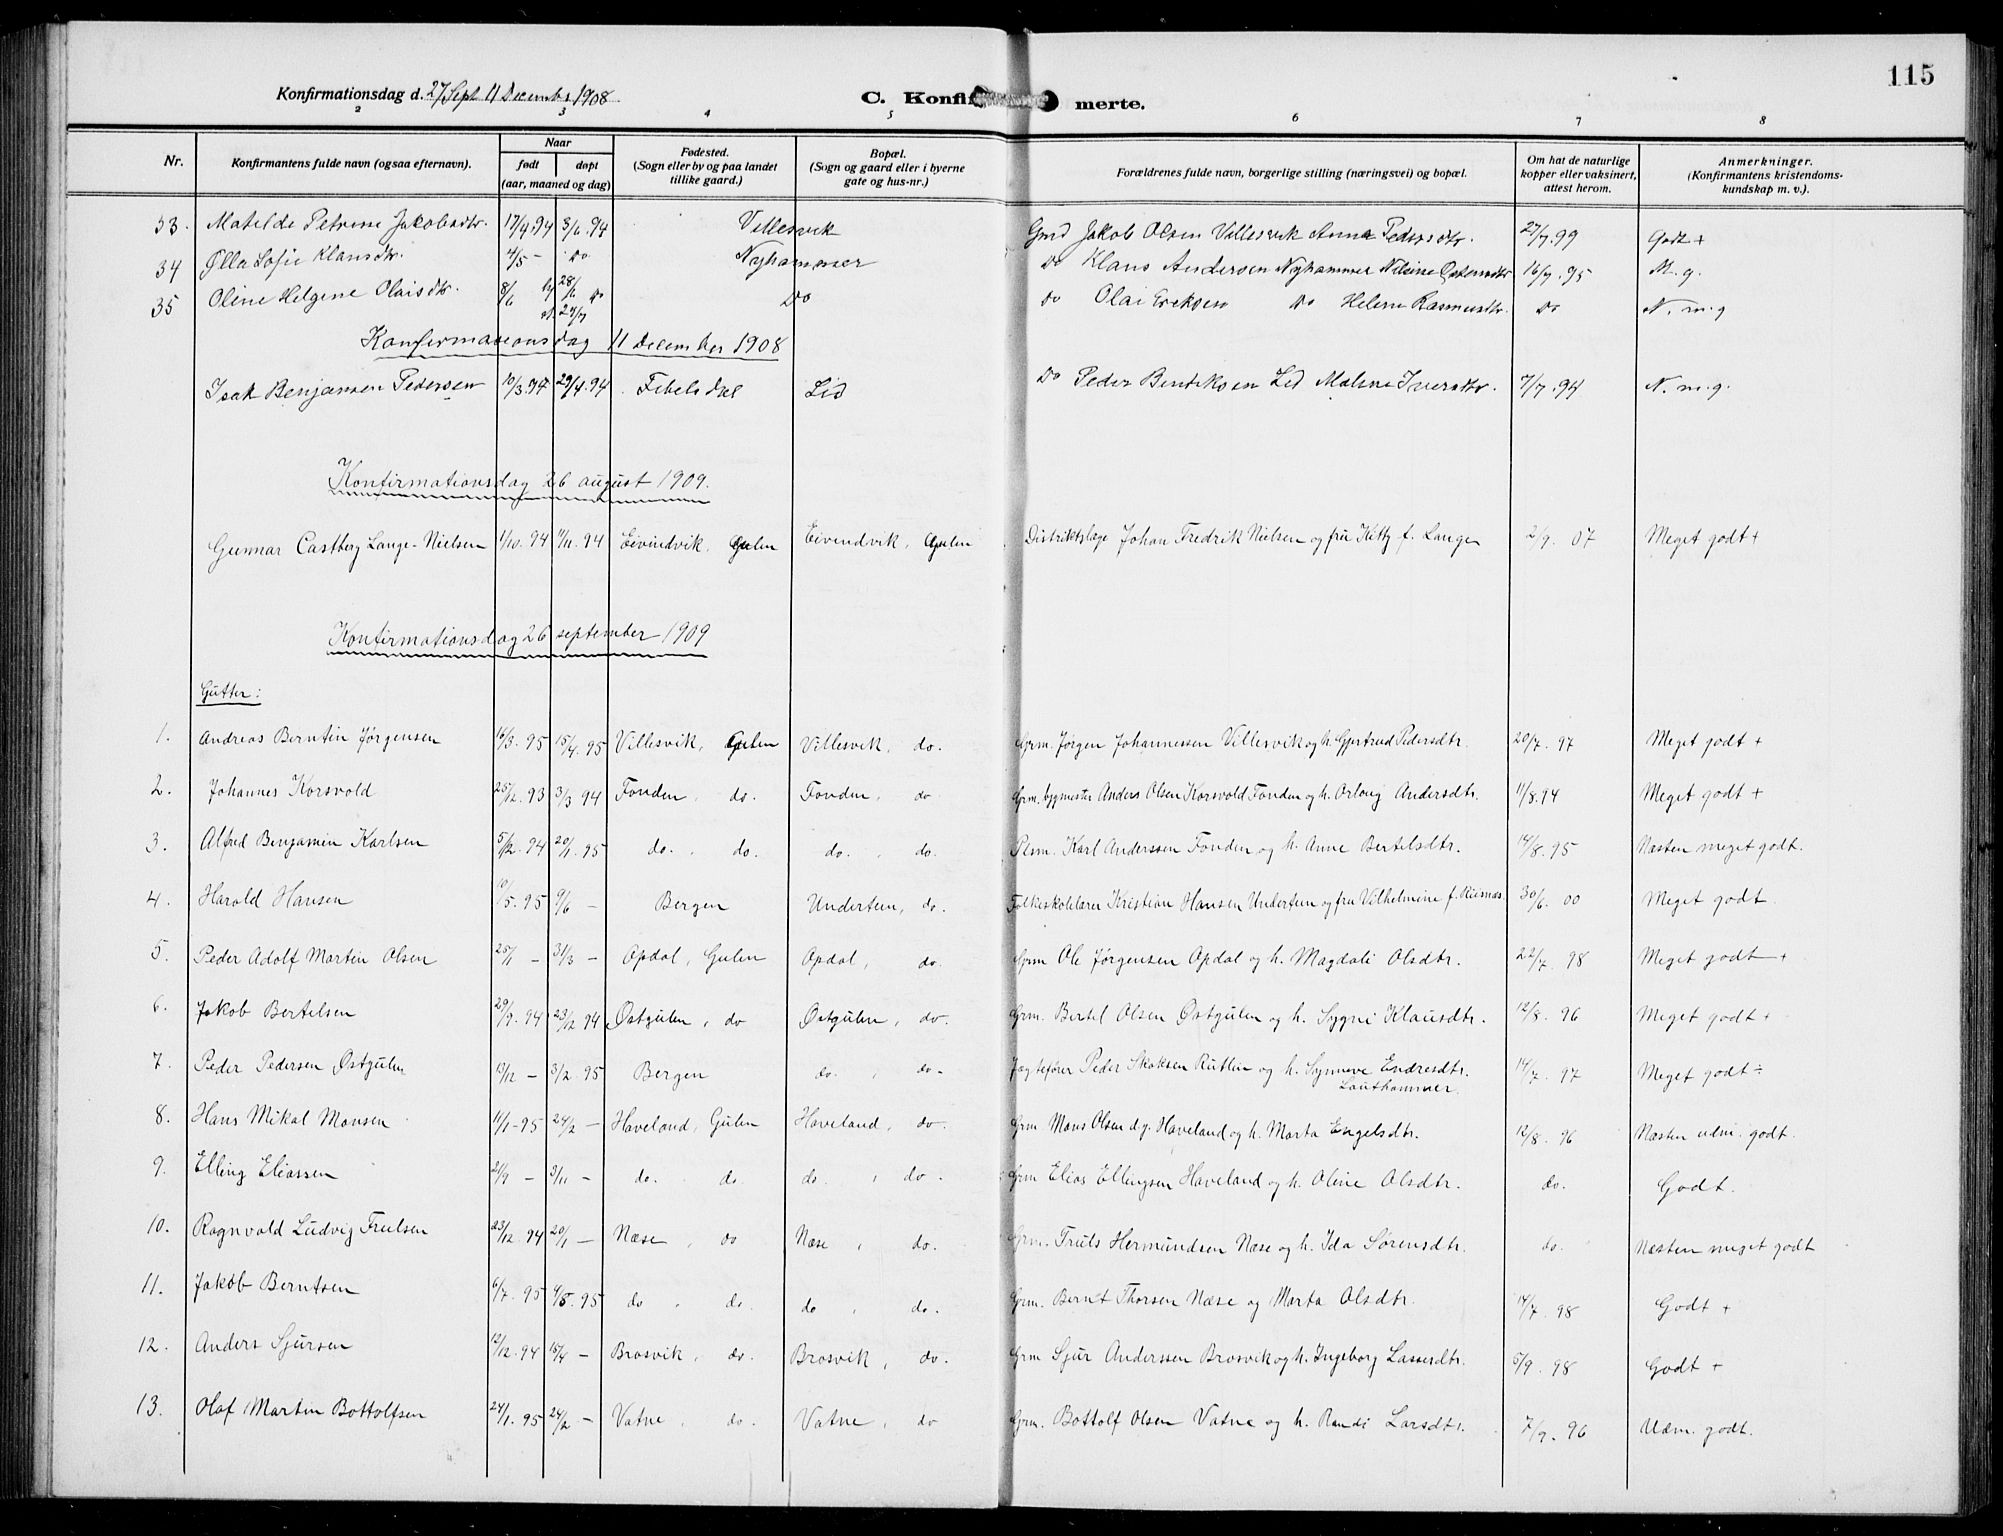 115
Konfirmationsdag d. 27 Sept 11 Decembr 1908 C. Konfir merte.
2 3 4 5 6 7 8
Nr. Konfirmantens fulde navn (ogsaa efternavn). Naar født døpt (aar, maaned og dag) Fødested. (Sogn eller by og paa landet tillike gaard.) Bopæl. (Sogn og gaard eller i byerne gate og hus-nr.) Forældrenes fulde navn, borgerlige stilling (næringsvei) og bopæl. Om hat de naturlige kopper eller vaksinert, attest herom. Anmerkninger. (Konfirmantens kristendomskundskap m. v.).
33. Matilde Petrine Jakobsdtr. 17/4.94 3/6.94 Villesvik Grd Jakob Olsen Villesvik Anna Pedersdtr. 27/7.99 Godt +
34 Ølla Sofie Klausdtr. 4/5 - do Nyhammer do Klaus Andersen Nyhammer Nilsine 16/7.95 M. g.
35 Oline Helgine Olaisdtr. 8/6 28/6 do 29/7 Do do Olai Ereksen do Helene Rasmusdtr. do N. m. g
Konfirmationsdag 11 December 1908
Isak Benjamin Pedersen 10/3.94 29/4.94 Fibelsdal Lid Do Peder Bendiksen Lid Malene Iversdtr. 7/7.94 N. m. g.
Konfirmationsdag 26 august 1909.
Gunnar Castberg Lange-Nielsen 1/10.94 11/11.94 Eivindvik, Gulen Eivindvik, Gulen Distriktslæge Johan Fredrik Nielsen og fru Kitty f. Lange 2/9. 07 Meget godt +
Konfirmationsdag 26 september 1909
Gutter:
1. Andreas Berntin Jørgensen 16/3.95 15/4.95 Villesvik, Gulen Villesvik, do. Grm. Jørgen Johannessen Villesvik og h. Gjertrud Pedersdtr. 20/7.97 Meget godt +
2. Johannes Korsvold 25/12.93 3/3 94 Fonden, do. Fonden, do Grm. bygmester Anders Olsen Korsvold Fonden og h. Arlaug Andersdtr. 11/8.94 Meget godt +
3. Alfred Benjamin Karlsen 5/12.94 20/1.95 do. do. do. do. Plsm. Karl Anderssen Fonden og h. Anne Bertelsdtr. 14/8.95 Næsten meget godt.
4. Harald Hansen 10/5.95 9/6 - Bergen Undertun, do. Folkeskolelærer Kristian Hansen Undertun og fru Vilhelmine f. Riisnæs. 30/6. 00 Meget godt.
5. Peder Adolf Martin Olsen 25/1 - 31/3 - Opdal, Gulen Opdal, do. Grm Ole Jørgensen Opdal og h. Magdali Olsdtr. 22/7. 98 Meget godt +
6. Jakob Bertelsen 29/9.94 23/12 94 Østgulen, do Østgulen, do. Grm. Bertel Olsen Østgulen og h. Sygni Klausdtr. 12/8. 96 Meget godt +
7. Peder Pedersen Østgulen 13/12 - 3/2.95 Bergen do. do. Jagtefører Peder Skaksen Rutlin og h. Synneve Endresdtr. Lauthammer. 14/7. 97 Meget godt ÷
8. Hans Mikal Monsen 11/1-95 24/2 - Haveland, Gulen Haveland, do. Grm Mons Olsen d.y. Haveland og h. Marta Engelsdtr. 12/8. 96 Næsten udm. godt.
9. Elling Eliassen 2/9 - 3/11 - do. do. do. do. Grm Elias Ellingsen Haveland og h. Oline Olsdtr. do. Godt.
10. Ragnvald Ludvig Trulsen 23/12.94 20/1 - Næse, do Næse, do. Grm. Truls Hermundsen Næse og h. Ida Sørensdtr. do. Næsten meget godt
11. Jakob Berntsen 6/7.95 4/8.95 do do. do do. Grm. Bernt Thorsen Næse og Marta Olsdtr. 14/7. 98 Godt +
12. Anders Sjursen 12/12.94 15/4 - Brosvik, do. Brosvik, do. Grm Sjur Anderssen Brosvik og h. Ingeborg Lassesdtr. 5/9. 98 Godt +
13. Olaf Martin Bottolfsen 24/1.95 24/2 - Vatne, do. Vatne, do Grm. Bottolf Olsen Vatne og h. Randi Larsdtr. 7/9. 96 Udm. godt.